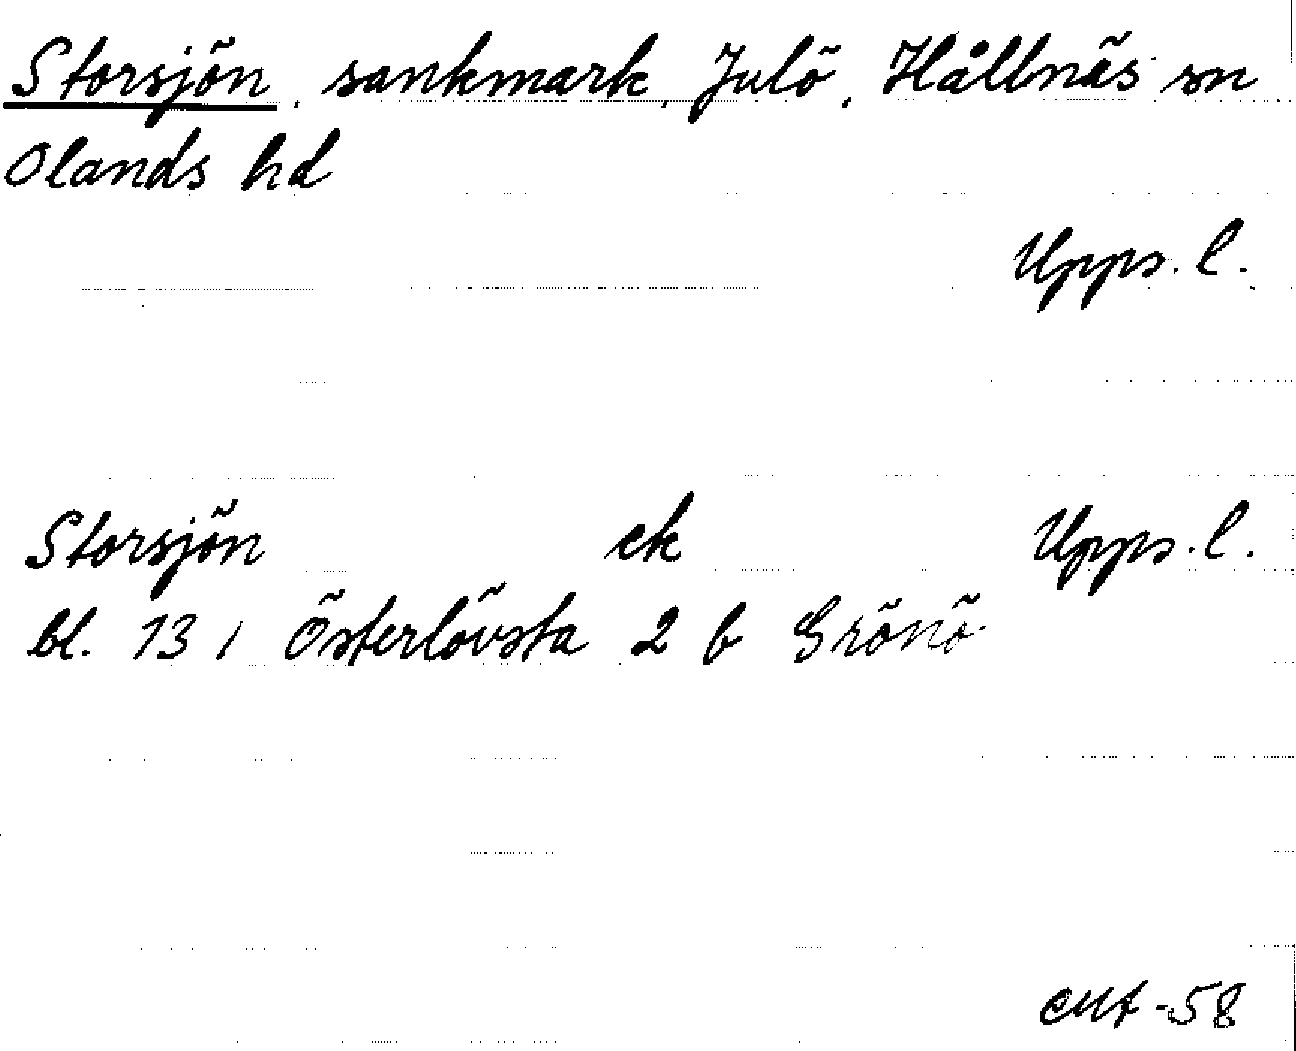 Storsjön, sankmark, Julö, Hållnäs sn
Olands hd
Upps. l.
Storsjön ek Upps. l.
bl. 13 i Österlövsta 2 b Grönö
-58